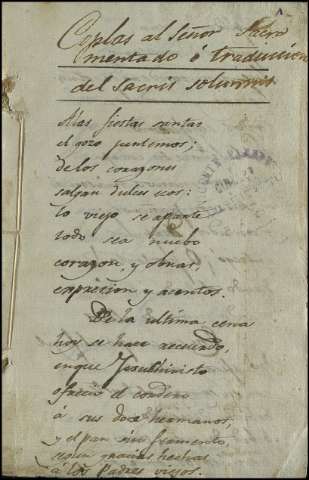 Coplas al Señor Sacra
mentado ó traduccion
del sacris solumnis
A las fiestas santas
el gozo juntemos;
de los corazones
salgan dulces ecos:
lo viejo se aparte
todo sea nuebo
corazon, y obras,
expresion y acentos.
De la ultima cena
hoy se hace recuerdo,
en que Jesuchristo
ofreció el cordero
á sus doce hermanos,
y el pan sin fermento,
segun gracias hechas
á los Padres viejos.